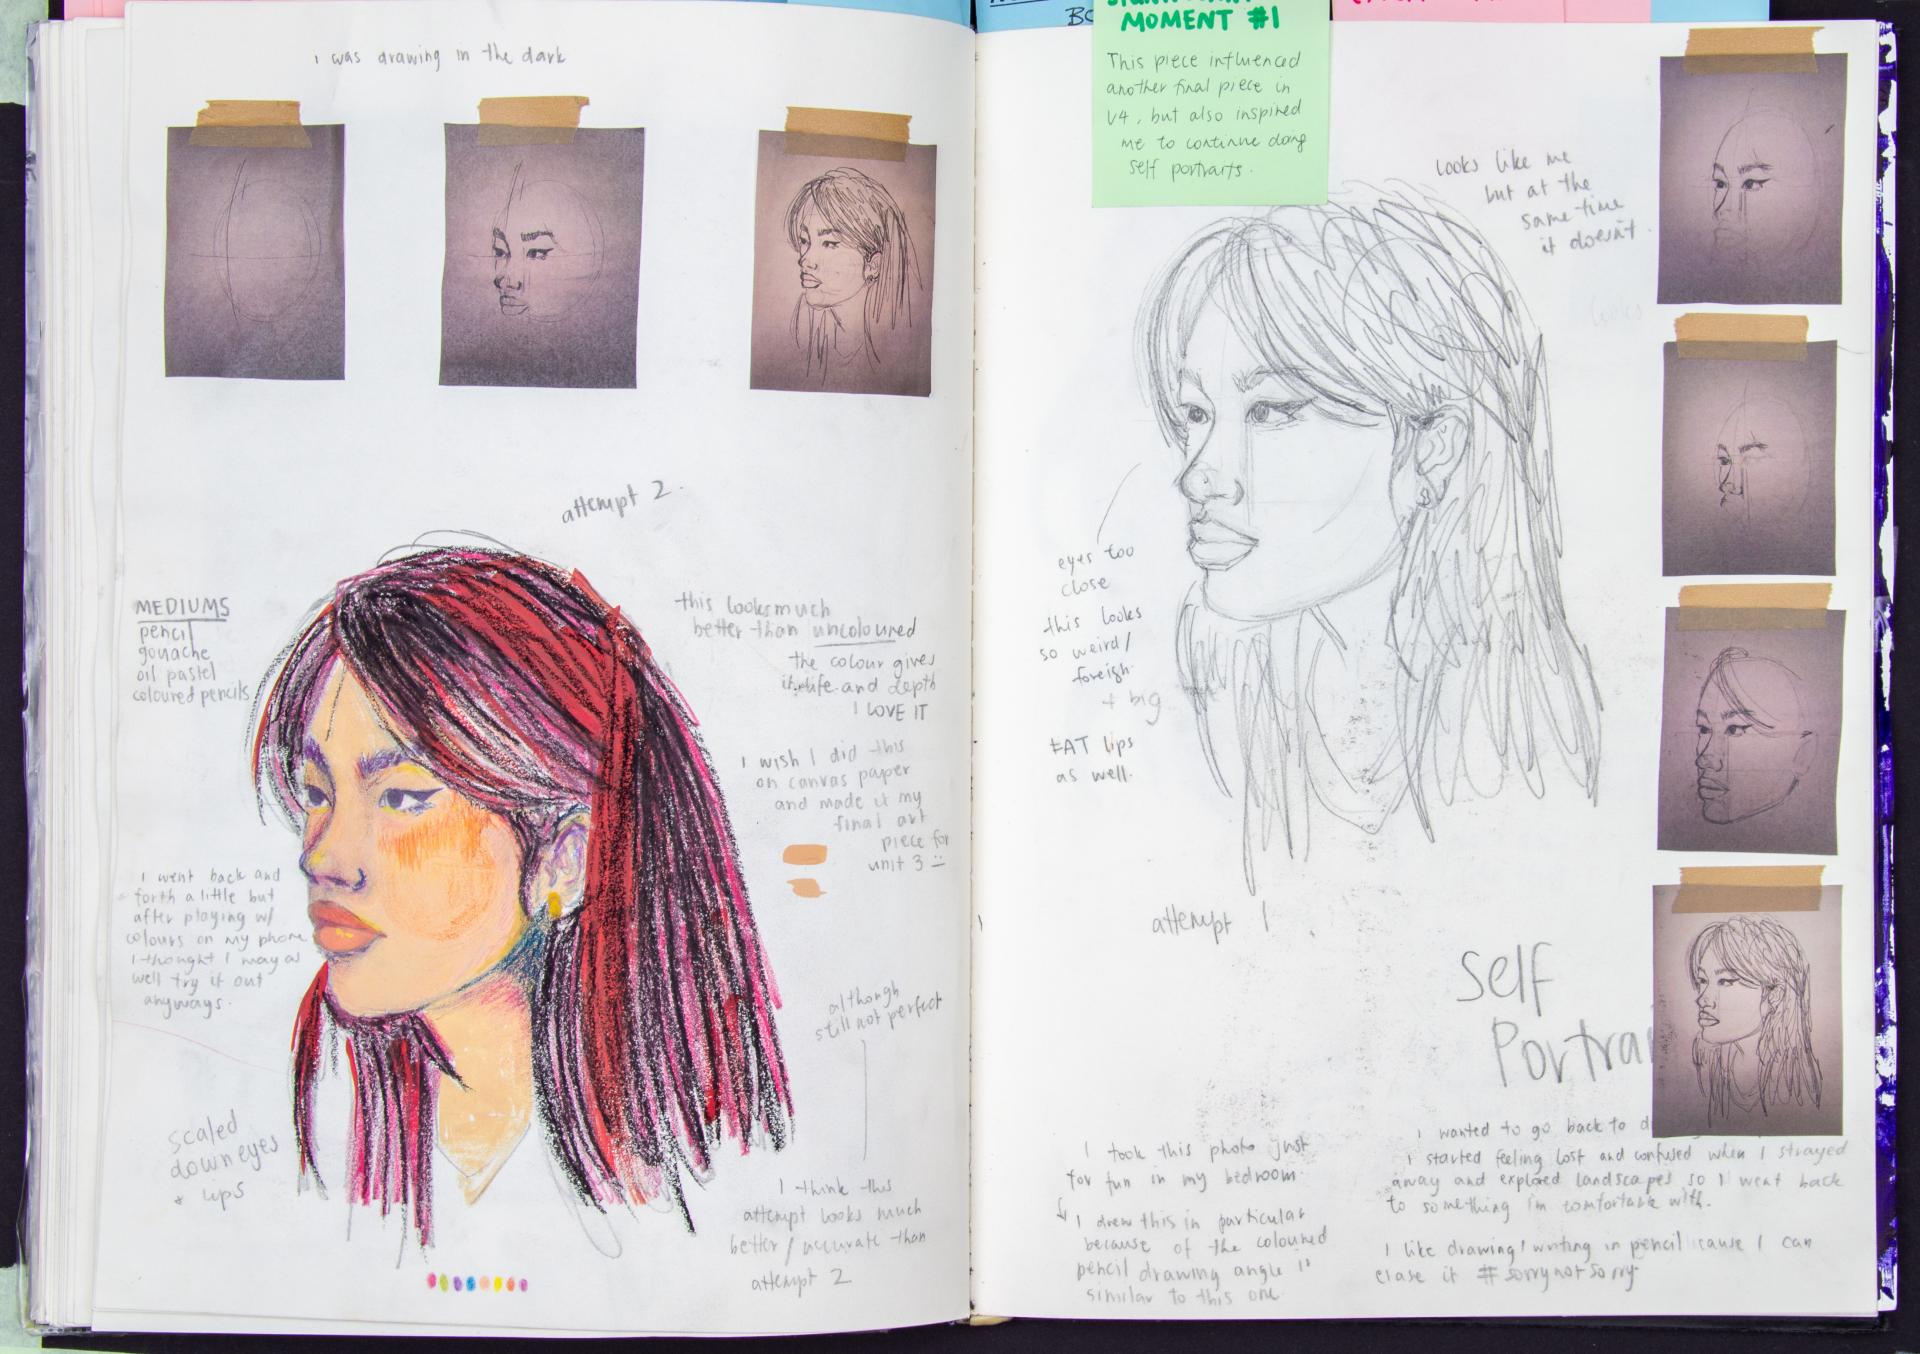 i was drawing in the dark
attempt 2.
MEDIUMS
pencil
gouache
oil pastel
coloured pencils
this looks much
better than uncoloured
the colour gives
it life and depth
I LOVE IT
I wish I did this
on canvas paper
and made it my
final art
piece for
unit 3
I went back and
forth a little but
after playing w/
colours on my phone
I thought I may as
well try it out
anyways.
although
still not perfect
scaled
down eyes
+ lips
I think this
attempt looks much
better / accurate than
attempt 2
BO
MOMENT #1
This piece influenced
another final piece in
U4, but also inspired
me to continue doing
self portraits.
looks like me
but at the
same time
it doesn't.
looks
eyes too
close
this looks
so weird/
foreign.
+ big
FAT lips
as well.
attempt 1
Self
Portrai
I took this photo just
for fun in my bedroom
I drew this in particular
because of the coloured
pencil drawing angle is
similar to this one
I wanted to go back to d
I started feeling lost and confused when I strayed
away and explored landscapes so I went back
to something i'm comfortable with.
I like drawing/writing in pencil cause I can
erase it #sorrynotsorry